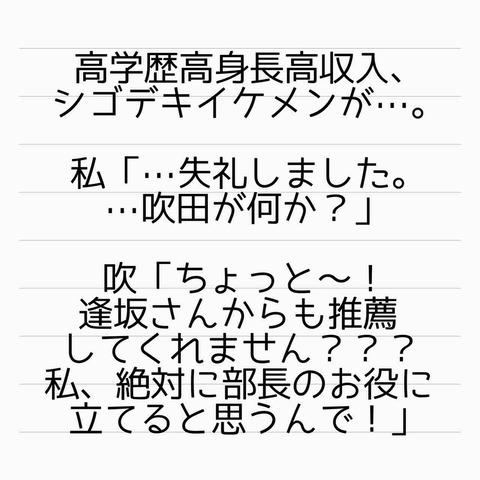 高学歴高身長高収入、
シゴデキイケメンが…。
私「…失礼しました。
…吹田が何か？」
吹「ちょっと～！
逢坂さんからも推薦
してくれません？？？
私、絶対に部長のお役に
立てると思うんで！」